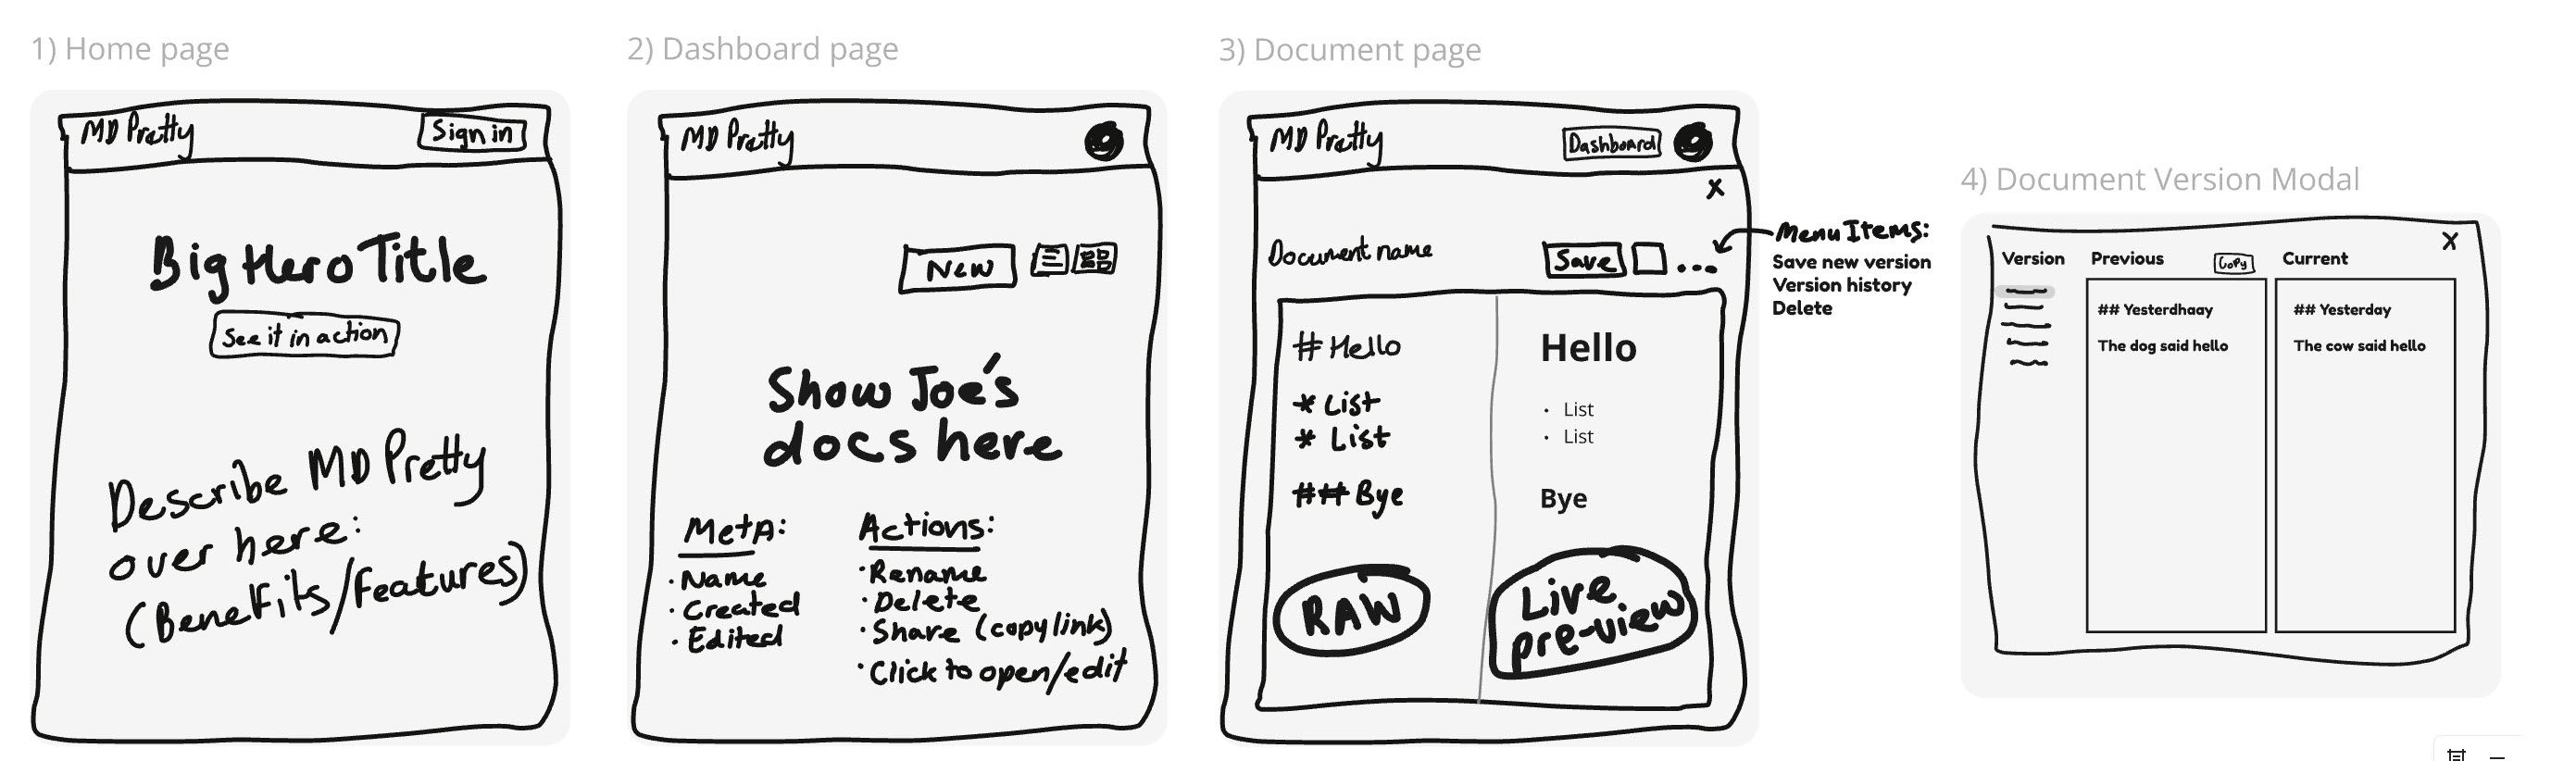 1) Home page
MD Pretty
Sign in
Big Hero Title
See it in action
Describe MD Pretty
over here:
(Benefits/Features)
2) Dashboard page
MD Pretty
New
Show Joe's
docs here
Meta:
· Name
· Created
· Edited
Actions:
· Rename
· Delete
· Share (copy link)
· Click to open/edit
3) Document page
MD Pretty
Dashboard
X
Document name
Save
...
Menu Items:
Save new version
Version history
Delete
# Hello
* List
* List
## Bye
RAW
Hello
• List
• List
Bye
Live
pre-view
4) Document Version Modal
X
Version
Previous
Copy
Current
## Yesterdhaay
The dog said hello
## Yesterday
The cow said hello